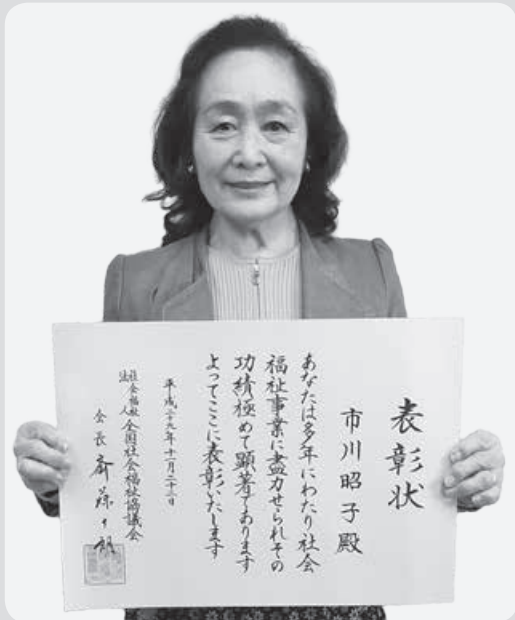 表彰状
市川昭子殿
あなたは多年にわたり社会
福祉事業に盡力せられその
功績極めて顕著であります
よってここに表彰いたします
平成二十九年十一月二十二日
社会福祉法人 全国社会福祉協議会
会長 斎藤十朗